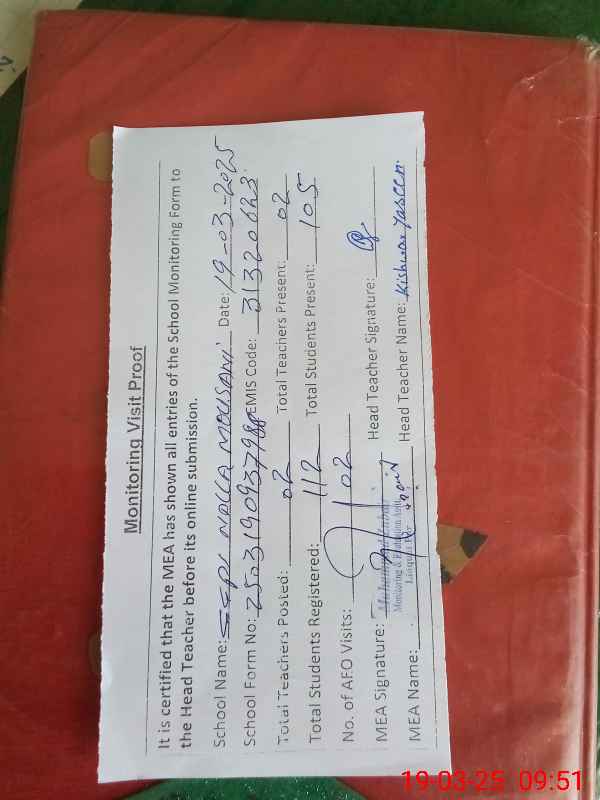 Monitoring Visit Proof
It is certified that the MEA has shown all entries of the School Monitoring Form to
the Head Teacher before its online submission.
School Name: NALLA MOUSANI Date: 19-03-2025
School Form No: EMIS Code: 31320623
Total Teachers Posted: 02 Total Teachers Present: 02
Total Students Registered: 112 Total Students Present: 105
No. of AEO Visits: 02
MEA Signature: Head Teacher Signature:
Muhammad
Monitoring & Evaluation
MEA Name: Head Teacher Name: Kishwar Yaseen
19-03-25 09:51